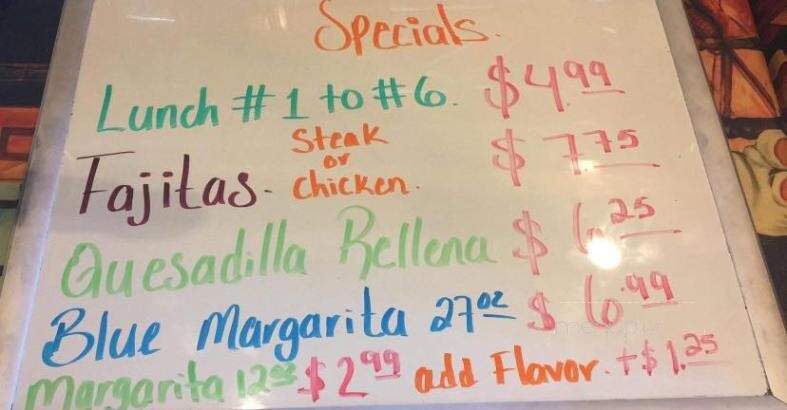 Specials.
Lunch #1 to #6. $4.99
Fajitas. Steak or Chicken. $7.75
Quesadilla Rellena $6.25
Blue Margarita 27oz $6.99
Margarita 12oz $2.99 add Flavor. +$1.25